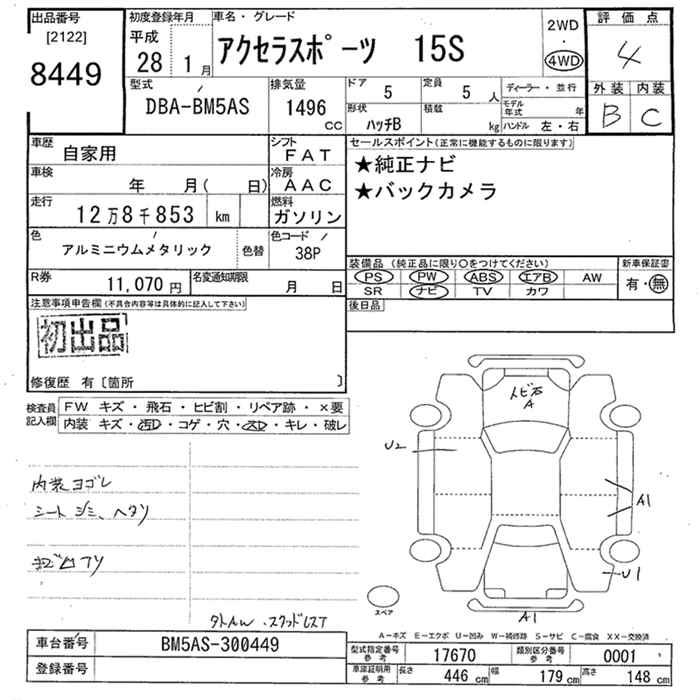 出品番号
[2122]
8449
初度登録年月
平成
28 1 月
車名・グレード
アクセラスポーツ 15S
2WD
・
4WD
評価点
4
外装 内装
B C
型式
DBA-BM5AS
排気量
1496
CC
ドア
5
定員
5 人
形状
ハッチB
積載
kg
ディーラー・並行
モデル年式 年
ハンドル 左・右
車歴
自家用
シフト
FAT
車検
年 月( 日)
冷房
AAC
走行
12万8千853 km
燃料
ガソリン
色
アルミニウムメタリック
色替
色コード
38P
R券
11,070 円
名変通知期限
月 日
セールスポイント(正常に機能するものに限ります)
★純正ナビ
★バックカメラ
装備品 (純正品に限り○をつけてください)
PS PW ABS エアB AW
SR ナビ TV カワ
新車保証書
有・無
後日品
注意事項申告欄(不具合内容等は具体的に記入して下さい)
初出品
修復歴 有〔箇所 〕
検査員記入欄
FW キズ・飛石・ヒビ割・リペア跡・×要
内装 キズ・汚D・コゲ・穴・スD・キレ・破レ
内装ヨゴレ
シート シミ、ヘタリ
トビ石
A
U2
A1
U1
A1
スペア
A-キズ E-エクボ U-凹み W-補修跡 S-サビ C-腐食 XX-交換済
車台番号
BM5AS-300449
登録番号
型式指定番号
参考
17670
類別区分番号
参考
0001
車庫証明用
参考
長さ
446 cm
幅
179 cm
高さ
148 cm